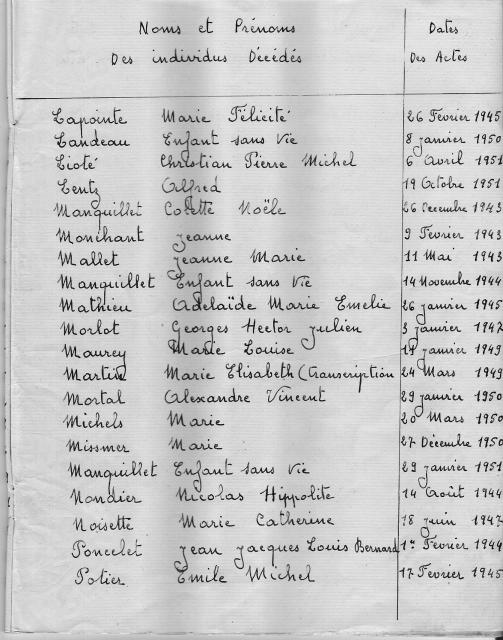 Noms et Prénoms Dates
Des individus Décédés Des Actes
Lapointe Marie Félicité 26 Fevrier 1945
Landeau Enfant sans Vie 8 janvier 1950
Lioté Christian Pierre Michel 6 Avril 1951
Lentz Alfred 19 Octobre 1951
Manguillet Colette Noële 26 Decembre 1943
Monchant Jeanne 9 Fevrier 1943
Mallet Jeanne Marie 11 Mai 1943
Manguillet Enfant sans Vie 14 Novembre 1944
Mathieu Adelaïde Marie Emelie 26 janvier 1945
Morlot Georges Hector Julien 3 janvier 1947
Maurey Marie Louise janvier 1949
Martin Marie Elisabeth (Transcription 24 Mars 1949
Mortal Alexandre Vincent 29 janvier 1950
Michels Marie 20 Mars 1950
Missmer Marie 27 Décembre 1950
Manguillet Enfant sans Vie 29 janvier 1951
Nondier Nicolas Hippolite 14 Août 1944
Noisette Marie Catherine 18 juin 1947
Poncelet Jean Jacques Louis Bernard 1er Fevrier 1944
Potier Emile Michel 17 Fevrier 1945